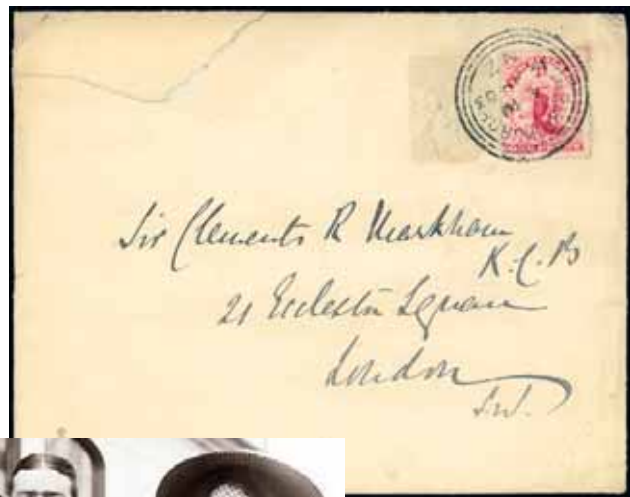 N.Z
Sir Clements R Markham
K.C.B
21 Eccleston Square
London
S.W.